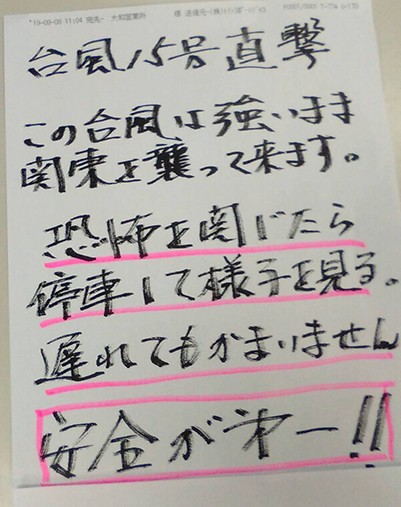 '19-09-06 11:04 宛先- 大和営業所
台風15号直撃
この台風は強いまま
関東を襲って来ます。
恐怖を関じたら
停車して様子を見る。
遅れてもかまいません
安全が才一!!